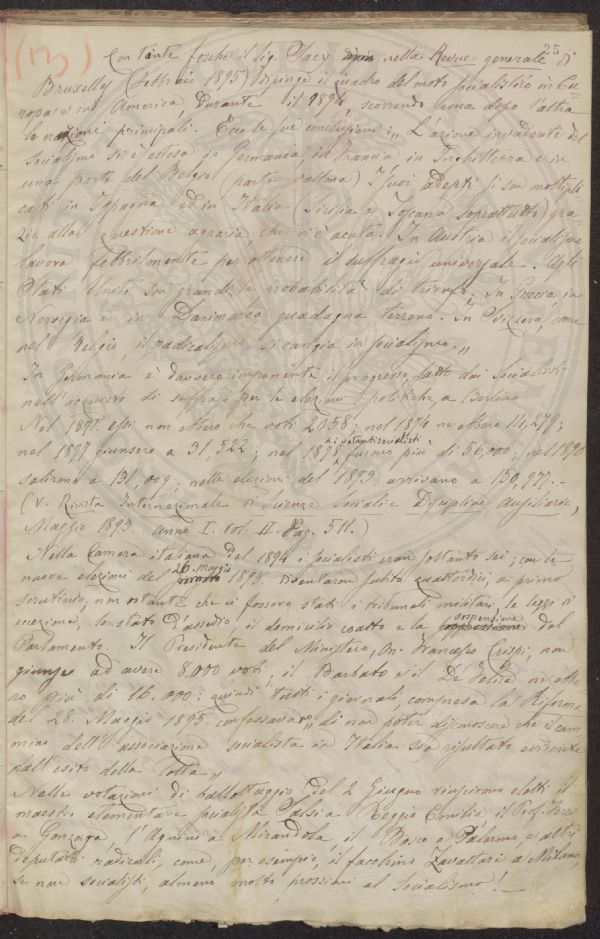 25
(13)
Con tinte fosche il sig. Sacy nella Revue generale di
Bruxelles (Febbraio 1895) dipinge il quadro del moto socialistico in Eu-
ropa e in America, durante il 1894, scorrendo una dopo l'altra
le nazioni principali. Ecco le sue conclusioni: „L'azione invadente del
Socialismo si è estesa in Germania, in Francia, in Inghilterra e in
una parte del Belgio (parte vallona) I suoi adepti si son moltipli-
cati in Ispagna ed in Italia (Sicilia e Toscana soprattutto) gra-
zie alla questione agraria che vi è acuta. In Austria il socialismo
lavora febbrilmente per ottenere il suffragio universale. Agli
Stati Uniti son grandi le probabilità di trionfo. In Grecia in
Norvegia e in Danimarca guadagna terreno. In Svizzera, come
nel Belgio, il radicalismo si cangia in socialismo.„
In Germania è davvero imponente il progresso fatto dai Socialisti
nell'acquisto di suffragi per le elezioni politiche a Berlino
Nel 1871 essi non ebbero che voti 2058; nel 1874 ne ebbero 11,279;
nel 1877 giunsero a 31,522; nel 1878 i votanti socialisti furono più di 56,000; nel 1890
salirono a 131,009; nelle elezioni del 1893 arrivano a 150,977.-
(V. Rivista Internazionale di Scienze Sociali e Discipline Ausiliarie,
Maggio 1893. Anno I. vol. II. Pag. 511.)
Nella Camera italiana del 1894 i socialisti eran soltanto sei; con le
nuove elezioni del 26. maggio 1895 diventarono subito quattordici, a primo
scrutinio, non ostante che ci fossero stati i tribunali militari, le leggi di
eccezione, lo stato d'assedio il domicilio coatto e la sospensione del
Parlamento. Il Presidente del Ministero, On. Francesco Crispi, non
giunse ad avere 8.000 voti, il Barbato e il De Felice ne ebbe-
ro più di 16.000: quindi tutti i giornali, compresa la Riforma
del 28. Maggio 1895. confessavano „di non poter disconoscere che il cam-
mino dell'associazione socialista in Italia sia risultato evidente
dall'esito della lotta„
Nelle votazioni di ballottaggio del 2 Giugno riuscirono eletti il
maestro elementare socialista a Reggio Emilia, il Prof. Ferri
a Gonzaga l'Agnini a Mirandola il Bosco a Palermo, e altri
deputati radicali, come, per esempio, il facchino Zavattari a Milano,
se non socialisti, almeno molto prossimi al Socialismo!